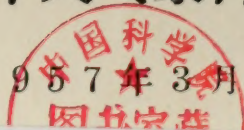 中国科学院
957年3月
图书室藏